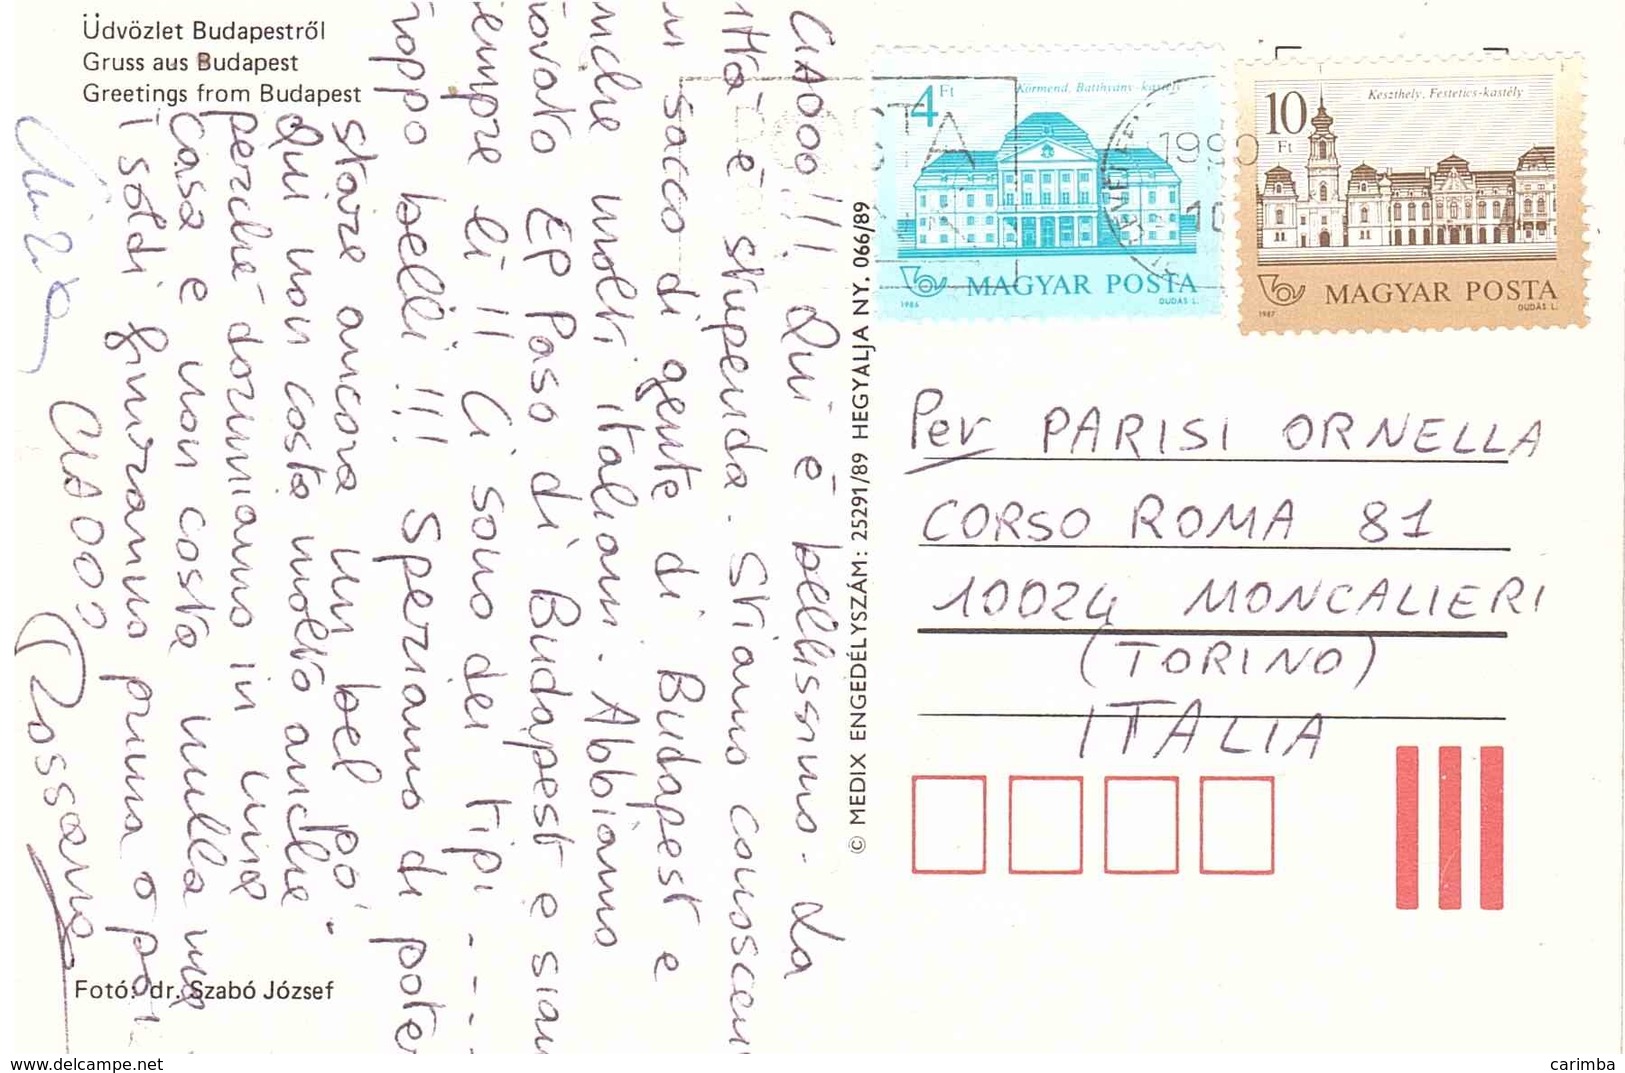 Üdvözlet Budapestről
Gruss aus Budapest
Greetings from Budapest
CIAOOO!!! Qui è bellissimo. La
città è stupenda. Stiamo conoscen
un sacco di gente di Budapest e
anche molti italiani. Abbiamo
trovato EP Paso di Budapest e siam
sempre lì!! Ci sono dei tipi ----
troppo belli!!! Speriamo di poter
stare ancora un bel po'.
Qui non costa molto anche
perché dormiamo in una
casa e non costa nulla ma
i soldi finiranno prima o poi
CIAOOO
Rossana
Fotó: dr. Szabó József
© MEDIX ENGEDÉLYSZÁM: 25291/89 HEGYALJA NY. 066/89
4 Ft
Körmend, Batthyány-kastély
MAGYAR POSTA
1986
DUDÁS L.
POSTA
1990
10
10 Ft
Keszthely, Festetics-kastély
MAGYAR POSTA
1987
DUDÁS L.
Per PARISI ORNELLA
CORSO ROMA 81
10024 MONCALIERI
(TORINO)
ITALIA
www.delcampe.net
carimba